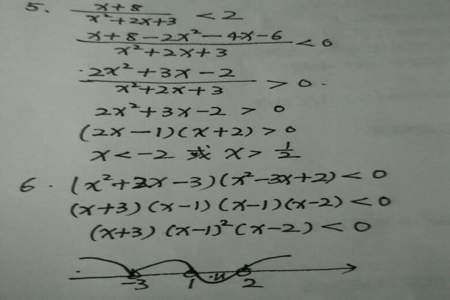 5. (x+8)/(x²+2x+3) < 2
(x+8-2x²-4x-6)/(x²+2x+3) < 0
(2x²+3x-2)/(x²+2x+3) > 0.
2x²+3x-2 > 0
(2x-1)(x+2) > 0
x<-2 或 x> 1/2
6. (x²+2x-3)(x²-3x+2) < 0
(x+3)(x-1)(x-1)(x-2) < 0
(x+3)(x-1)²(x-2) < 0
-3 1 2